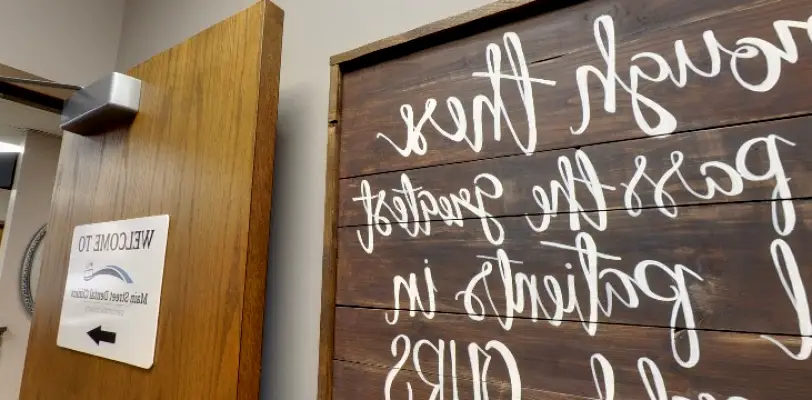 WELCOME TO
Main Street Dental Clinics
rough these
pass the greatest
l patients in
OURS